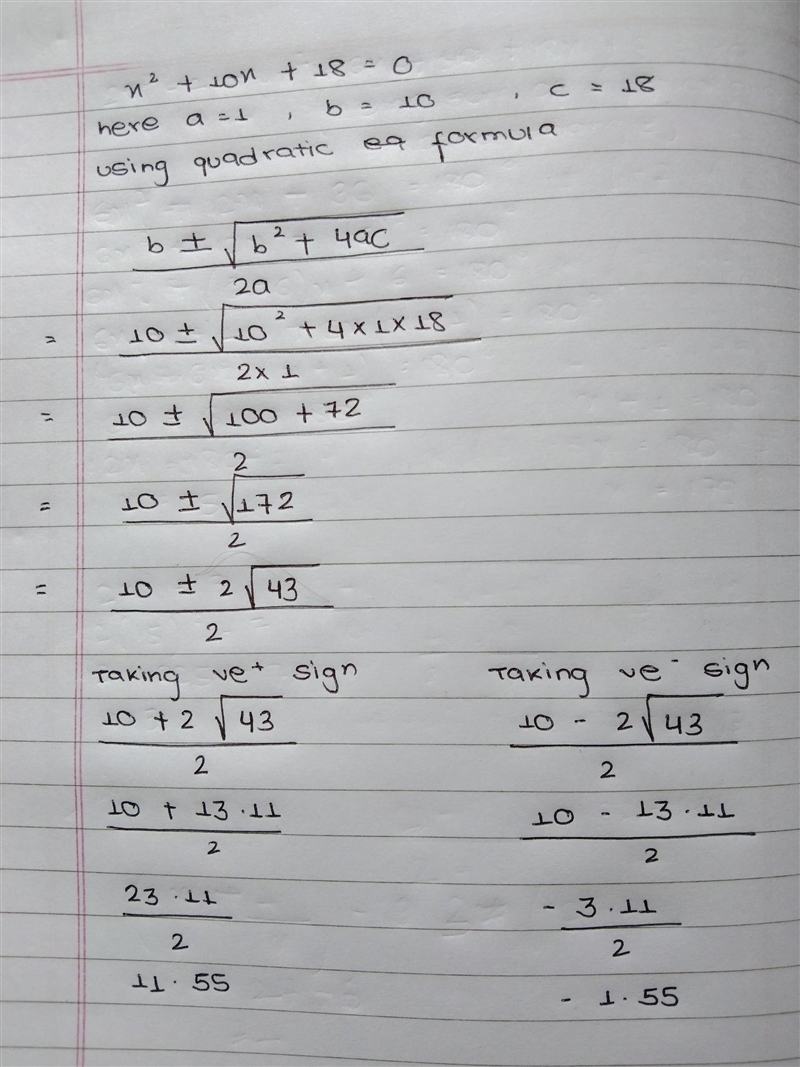 x² + 10x + 18 = 0
here a = 1 , b = 10 , c = 18
using quadratic eq formula
b ± √(b² + 4ac)
2a
= 10 ± √(10² + 4 × 1 × 18)
2 × 1
= 10 ± √(100 + 72)
2
= 10 ± √172
2
= 10 ± 2√43
2
Taking ve⁺ sign
10 + 2√43
2
10 + 13.11
2
23.11
2
11.55
Taking ve⁻ sign
10 - 2√43
2
10 - 13.11
2
- 3.11
2
- 1.55